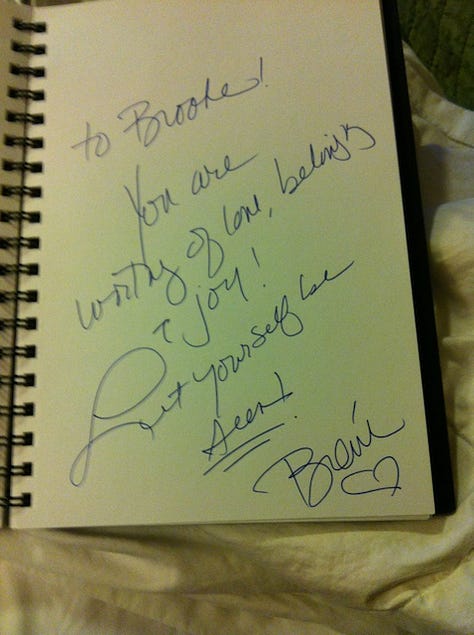 to Brooke!
You are
worthy of love, belonging
& joy!
Let yourself be
seen!
Brené